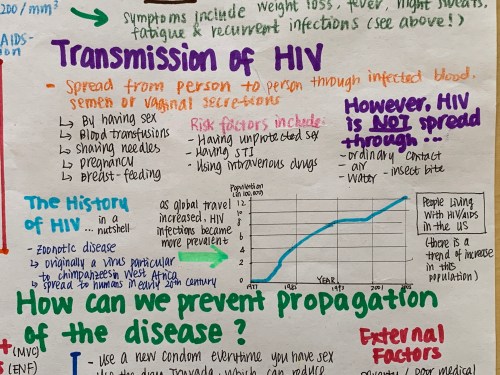 200/mm³
symptoms include weight loss, fever, night sweats,
fatigue & recurrent infections (see above!)
AIDS-
Transmission of HIV
- Spread from person to person through infected blood,
semen or vaginal secretions
↳ By having sex
↳ Blood transfusions
↳ sharing needles
↳ pregnancy
↳ Breast-feeding
Risk factors include:
- Having unprotected sex
- Having STI
- Using intravenous drugs
However, HIV
is NOT spread
through...
- ordinary contact
- air
- water
- insect bite
The History
of HIV ... in a
nutshell
- zoonotic disease
↳ originally a virus particular
to chimpanzees in West Africa
↳ spread to humans in early 20th century
as global travel
increased, HIV
infections became
more prevalent
Population
(in 100,000)
12
10
8
6
4
2
0
1977
1985
1993
2001
YEAR
People living
with HIV/AIDS
in the US
(there is a
trend of increase
in this
population)
How can we prevent propagation
of the disease?
(MVC)
(ENF)
- use a new condom everytime you have sex
External
Factors